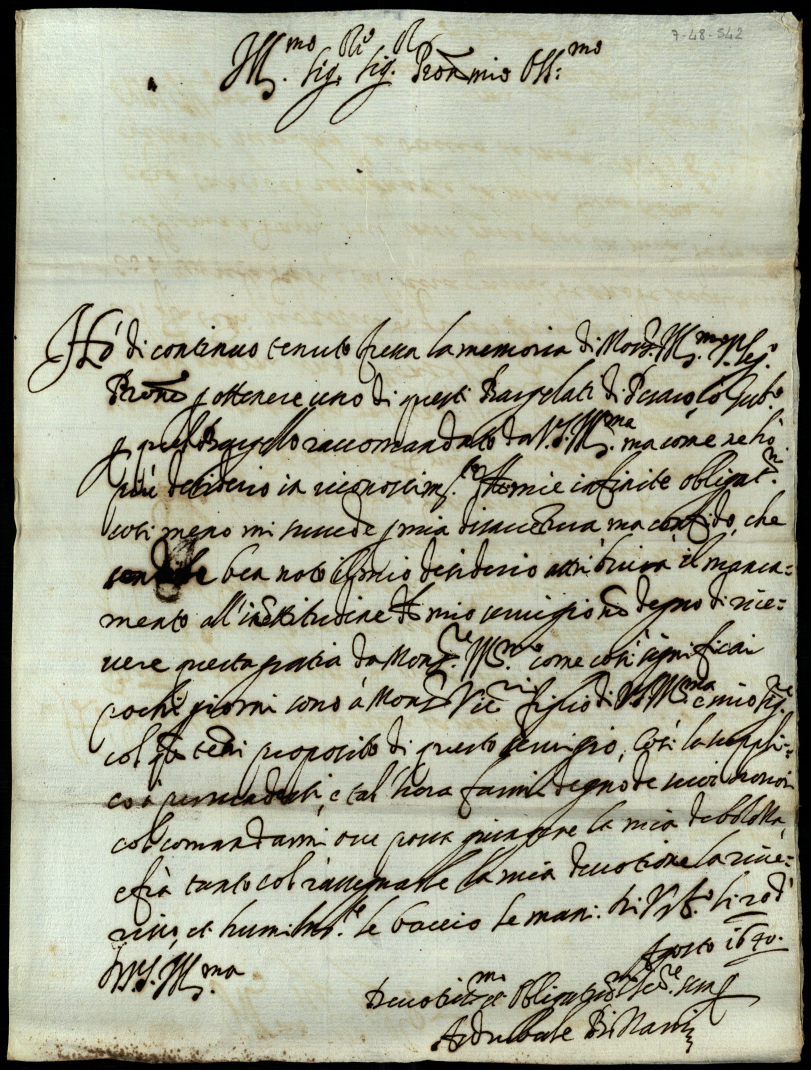 7-48-542
Ill.mo Sig.r Sig.r Pron mio Oss:mo
Hó di continuo tenuto fresca la memoria di Mons.r Ill.mo
Prone p ottenere uno di questi Bargelati di Pesaro, ó Gub.o
p quel Bargello raccomandato da V.S. Ill.ma ma come ne hó
più desiderio in riconoscim.to mie infinite obligat.ni
cosi meno mi succede p mia disauentura ma confido, che
ben noto il mio desiderio attribuirà il manca=
mento all' inettitudine del mio seruigio nō degno di rice=
uere questa gratia da Mons.re Ill.mo come cosi significai
pochi giorni sono á Mons.r figlio di V.S. Ill.ma e mio Sig.re
col q̃le tēni proposito di questo seruigio, Così la suppli=
co á persuadersi, e tal'hora farmi degno de suoi honori
col comandarmi oue possa giungere la mia debolezza,
e frà tanto col rassegnarle la mia deuotione la riue=
risco, et humilm.te le baccio le mani. Di Urb.o li 20 d'
Agosto 1640.
D V.S. Ill.ma
Deuotiss.mo et Obligatiss.mo Se.re
Asdrubale